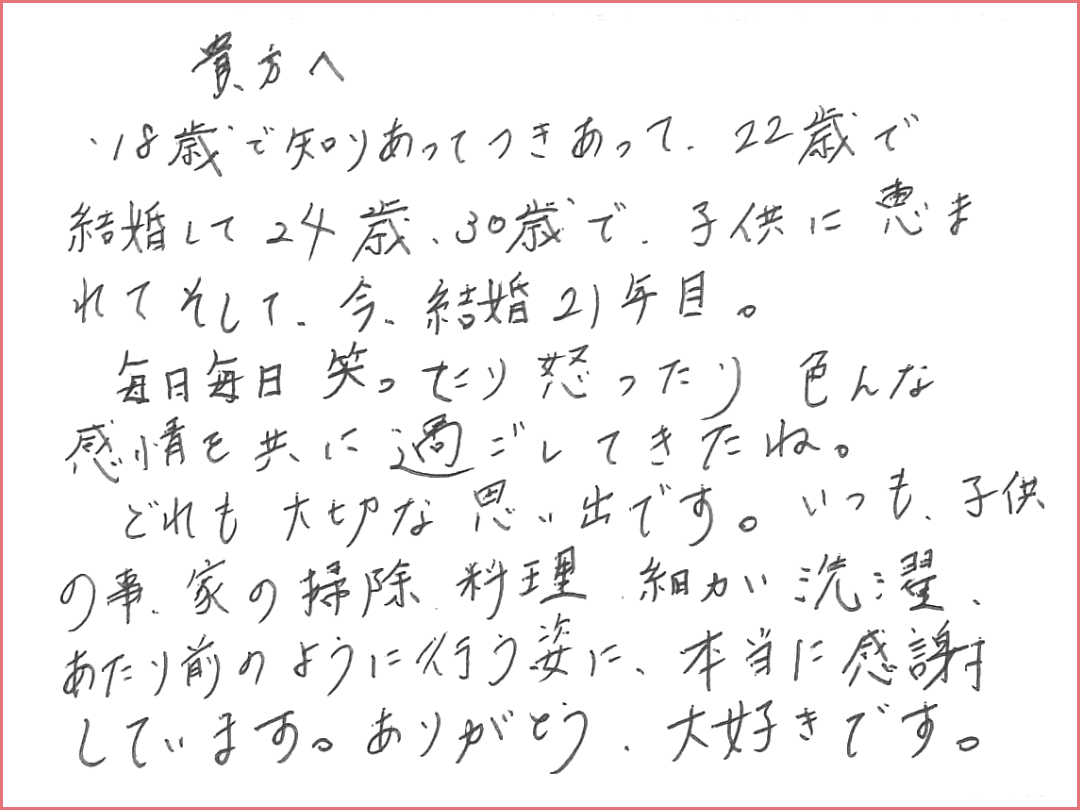 貴方へ
18歳で知りあってつきあって、22歳で
結婚して24歳、30歳で、子供に恵ま
れてそして、今、結婚21年目。
毎日毎日笑ったり怒ったり色んな
感情を共に過ごしてきたね。
どれも大切な思い出です。いつも、子供
の事、家の掃除、料理、細かい洗濯、
あたり前のように行う姿に、本当に感謝
しています。ありがとう、大好きです。